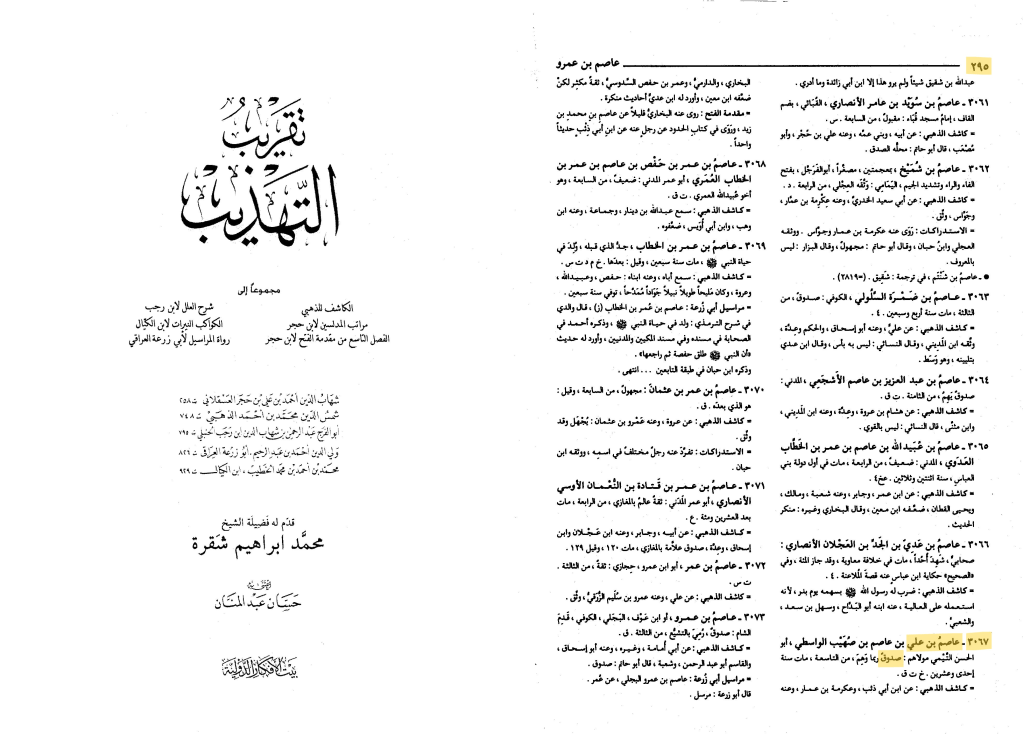 ٢٩٥
عاصم بن عمرو
عبدالله بن شقيق شيئاً ولم يرو هذا إلا ابن أبي زائدة وما أدري .
٣٠٦١ ـ عاصمُ بن سُوَيْد بن عامر الأنصاري ، القُبَائي ، بضم
القاف ، إمامُ مسجد قُباء : مقبولٌ ، من السابعة . س .
= كاشف الذهبي : عن أبيه ، وبني عمّه ، وعنه علي بن حُجْر ، وأبو
مُصْعَب ، قال أبو حاتم : محلُّه الصدق .
٣٠٦٢ ـ عاصمُ بن شُمَيْخ ، بمعجمتين ، مصغَّراً ، أبوالفَرَجَّل ، بفتح
الفاء والراء وتشديد الجيم ، اليَمَامي : وَثَّقه العِجْلي ، من الرابعة . د .
= كاشف الذهبي : عن أبي سعيد الخدريّ ، وعنه عِكْرِمة بن عمَّار ،
وجَوَّاس ، وثّق .
= الاستدراكات : رَوَى عنه عكرمة بن عمار وجوَّاس . ووثقه
العجلي وابنُ حبان ، وقال أبو حاتم : مجهولٌ ، وقال البزار : ليس
بالمعروف .
● ـ عاصم بن شَنْتَم ، في ترجمة : شَقِيق . (=٢٨١٩) .
٣٠٦٣ ـ عاصمُ بن ضَمْرَة السَّلُولي ، الكوفي : صدوقٌ ، من
الثالثة ، مات سنة أربع وسبعين . ٤ .
= كاشف الذهبي : عن عليٍّ ، وعنه أبو إسحاق ، والحكم وعدَّة ،
وثَّقه ابن المديني ، وقال النسائي : ليس به بأس ، وقال ابن عدي
بتليينه ، وهو وَسَط .
٣٠٦٤ ـ عاصمُ بن عبد العزيز بن عاصم الأشجَعي ، المدني :
صدوقٌ يَهِمُ ، من الثامنة . ت ق .
= كاشف الذهبي : عن هشام بن عروة ، وعدَّة ، وعنه ابن المَديني ،
وابن مثنَّى ، قال النسائي : ليس بالقوي .
٣٠٦٥ ـ عاصمُ بن عُبيد الله بن عاصم بن عمر بن الخَطَّاب
العَدَوي ، المدني : ضعيفٌ ، من الرابعة ، مات في أول دولة بني
العباس ، سنة اثنتين وثلاثين . عخ٤ .
= كاشف الذهبي : عن ابن عمر ، وجابر ، وعنه شعبة ، ومالك ،
ويحيى القطان ، ضعَّفه ابن معين ، وقال البخاري وغيره : منكر
الحديث .
٣٠٦٦ ـ عاصمُ بن عَدِيّ بن الجَدّ بن العَجْلان الأنصاري :
صحابيٌّ ، شَهِدَ أُحُداً ، مات في خلافة معاوية ، وقد جاز المئة ، وفي
«الصحيح» حكاية ابن عباس عنه قصةَ المُلاعنة . ٤ .
= كاشف الذهبي : ضرب له رسول الله ﷺ بسهمه يوم بدر ، لأنه
استعمله على العالية ، عنه ابنه أبو البَدَّاح ، وسهل بن سعد ،
والشعبيُّ .
٣٠٦٧ ـ عاصمُ بن علي بن عاصم بن صُهَيْب الواسطي ، أبو
الحسن التَّيْمي مولاهم : صدوقٌ ربما وَهِمَ ، من التاسعة ، مات سنة
إحدى وعشرين . خ ت ق .
= كاشف الذهبي : عن ابن أبي ذئب ، وعكرمة بن عمار ، وعنه
البخاري ، والدارميُّ ، وعمر بن حفص السَّدوسيّ ، ثقةٌ مكثِر لكنْ
ضعَّفه ابن معين ، وأورد له ابن عديٍّ أحاديث منكرة .
= مقدمة الفتح : روى عنه البخاريُّ قليلاً عن عاصم بنِ محمد بن
زيد ، ورَوَى في كتاب الحدود عن رجل عنه عن ابن أبي ذِئْبٍ حديثاً
واحداً .
٣٠٦٨ ـ عاصمُ بن عمر بن حَفْص بن عاصم بن عمر بن
الخطاب العُمَري ، أبو عمر المدني : ضعيفٌ ، من السابعة ، وهو
أخو عُبيدالله العمري . ت ق .
= كاشف الذهبي : سمع عبدالله بن دينار ، وجماعة ، وعنه ابن
وهب ، وابن أبي أُوَيْس ، ضعّفوه .
٣٠٦٩ ـ عاصمُ بن عمر بن الخطاب ، جدُّ الذي قبله ، وُلِدَ في
حياة النبي ﷺ ، مات سنة سبعين ، وقيل : بعدَها . خ م د ت س .
= كاشف الذهبي : سمع أباه ، وعنه ابناه : حفص ، وعبيدالله ،
وعروة ، وكان مَليحاً طويلاً نبيلاً جَوَاداً مُمَدَّحاً ، توفي سنة سبعين .
= مراسيل أبي زُرعة : عاصم بن عُمر بن الخطاب (ز) ، قال والدي
في شرح الترمذي : ولد في حياة النبي ﷺ ، وذكره أحمد في
الصحابة في مسنده وفي مسند المكيين والمدنيين ، وأورد له حديث
«أن النبي ﷺ طلق حفصة ثم راجعها» .
وذكره ابن حبان في طبقة التابعين . . . انتهى .
٣٠٧٠ ـ عاصمُ بن عمر بن عثمان : مجهولٌ ، من السابعة ، وقيل :
هو الذي بعدَه . ق .
= كاشف الذهبي : عن عروة ، وعنه عَمْرو بن عثمان : يُجْهَلُ وقد
وثّق .
= الاستدراكات : تفرَّد عنه رجلٌ مختلفٌ في اسمه ، ووثقه ابن
حبان .
٣٠٧١ ـ عاصمُ بن عمر بن قَتادة بن النُّعْمان الأوسي
الأنصاري ، أبو عمر المَدَني : ثقةٌ عالمٌ بالمغازي ، من الرابعة ، مات
بعد العشرين ومئة . ع .
= كاشف الذهبي : عن أبيه ، وجابر ، وعنه ابن عَجْلان وابن
إسحاق ، وعدَّة ، صدوق علاَّمة بالمغازي ، مات ١٢٠ ، وقيل ١٢٩ .
٣٠٧٢ ـ عاصمُ بن عمر ، أبو ابن عمرو ، حِجازي : ثقةٌ ، من الثالثة .
ت س .
= كاشف الذهبي : عن علي ، وعنه عمرو بن سُلَيم الزُّرَقيُّ ، وثِّق .
٣٠٧٣ ـ عاصمُ بن عمرو ، أو ابن عَوْف ، البَجَلي ، الكوفي ، قَدِمَ
الشام : صدوقٌ ، رُمِيَ بالتشيُّع ، من الثالثة . ق .
= كاشف الذهبي : عن أبي أُمامة ، وغيره ، وعنه أبو إسحاق ،
والقاسم أبو عبد الرحمن ، وشعبة ، قال أبو حاتم : صدوق .
= مراسيل أبي زُرعة : عاصم بن عمرو البجلي ، عن عُمر .
قال أبو زرعة : مرسل .
تقريب
التهذيب
مجموعاً إلى
الكاشف للذهبي
شرح العلل لابن رجب
مراتب المدلسين لابن حجر
الكواكب النيرات لابن الكيال
الفصل التاسع من مقدمة الفتح لابن حجر
رواة المراسيل لأبي زرعة العراقي
شهاب الدين أحمد بن علي بن حجر العسقلاني ت ٨٥٢
شمس الدين محمد بن أحمد الذهبي ت ٧٤٨
أبو الفرج عبد الرحمن بن شهاب الدين ابن رجب الحنبلي ت ٧٩٥
ولي الدين أحمد بن عبد الرحيم أبو زرعة العراقي ت ٨٢٦
محمد بن أحمد بن محمد الخطيب ، ابن الكيال ت ٩٢٩
قدّم له فضيلة الشيخ
محمَّد ابراهيم شقرة
اعتنى به
حسان عبد المنان
بيت الأفكار الدولية